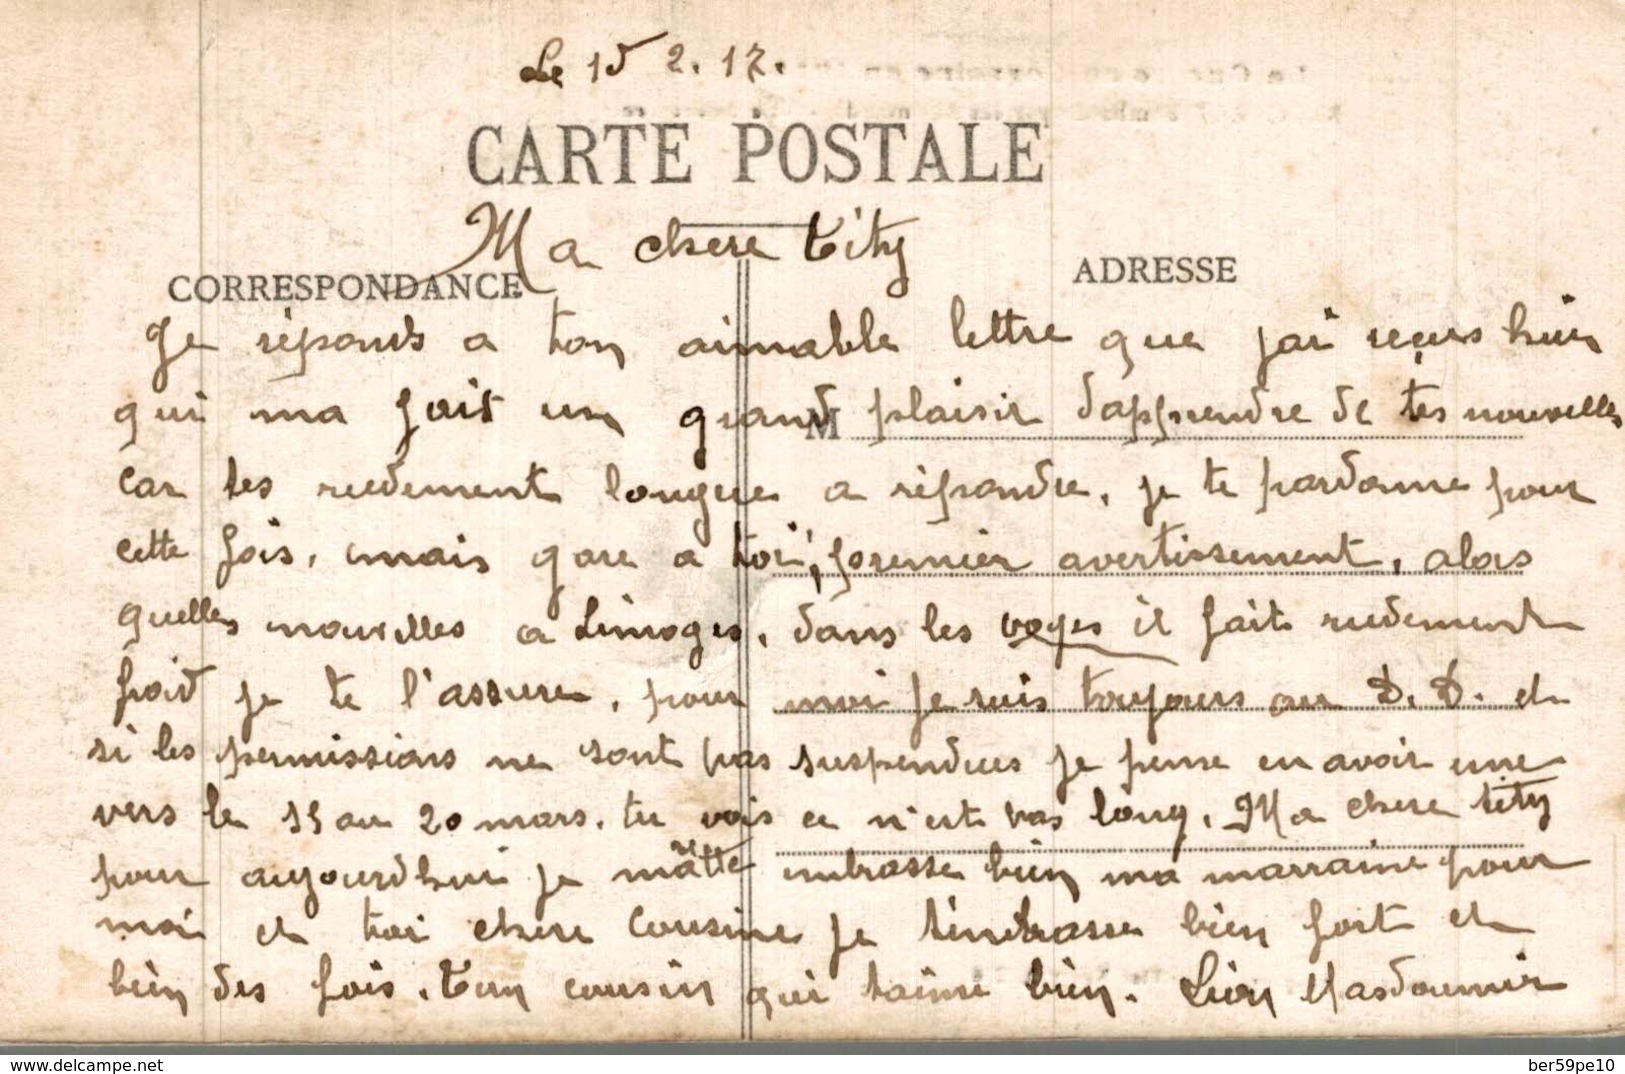 Le 15 2. 17.
CARTE POSTALE
Ma chere tity
CORRESPONDANCE
ADRESSE
Je réponds a ton aimable lettre que jai reçus hier
qui ma fait un grand plaisir dapprendre de tes nouvelles
M
car tes rudement longue a répondre, je te pardonne pour
cette fois, mais gare a toi, premier avertissement, alors
quelles nouvelles a Limoges, dans les voges il fait rudement
froid je te l'assure, pour moi je suis toujours au D. D. et
si les permissions ne sont pas suspendues je pense en avoir une
vers le 15 au 20 mars. tu vois ce n'est pas long. Ma chere tity
pour aujourdhui je marette embrasse bien ma marraine pour
moi et toi chere cousine je t'embrasse bien fort et
bien des fois. Ton cousin qui taime bien. Léon Masdoumier
delcampe.net
ber59pe10